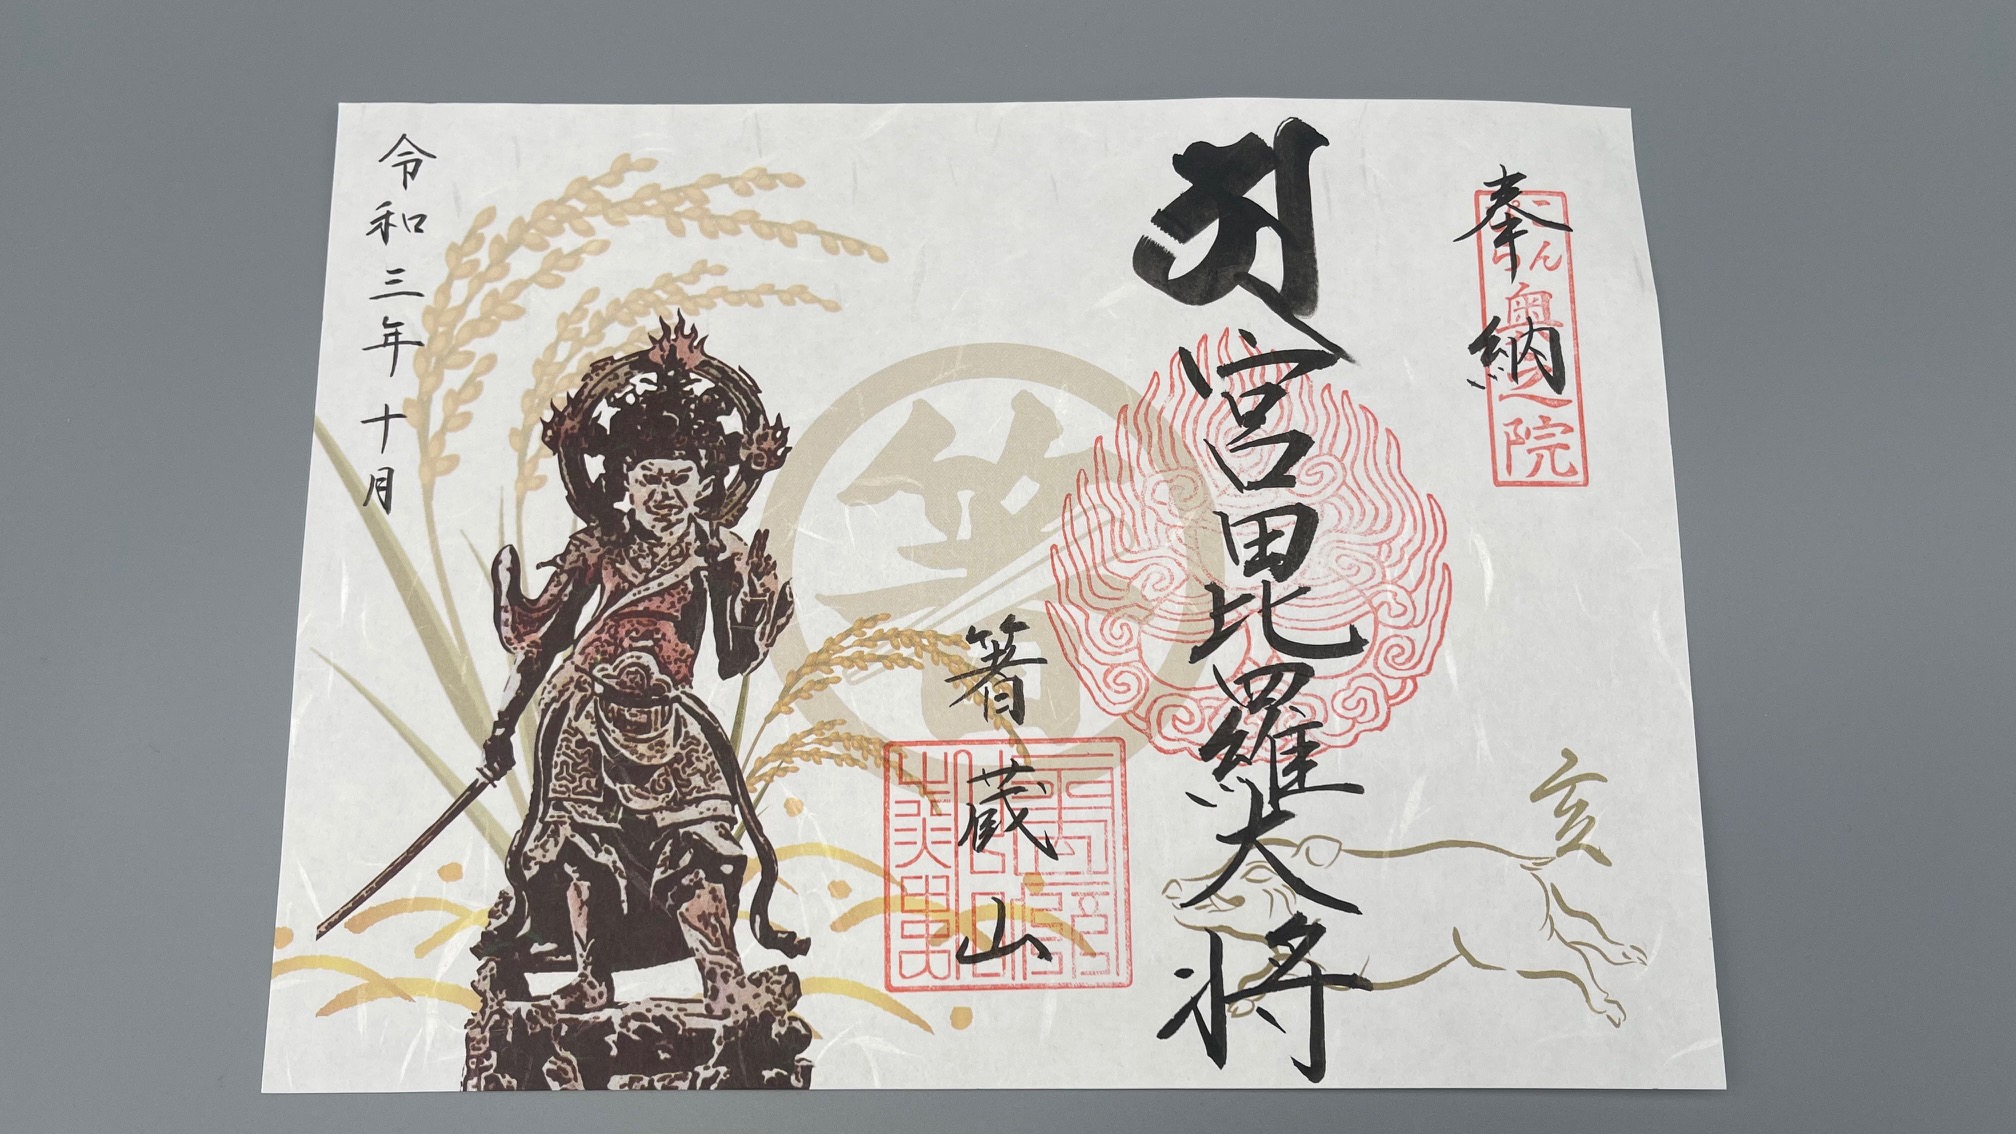 奉納
こんぴら奥之院
宮毘羅大将
亥
箸
箸蔵山
令和三年十月